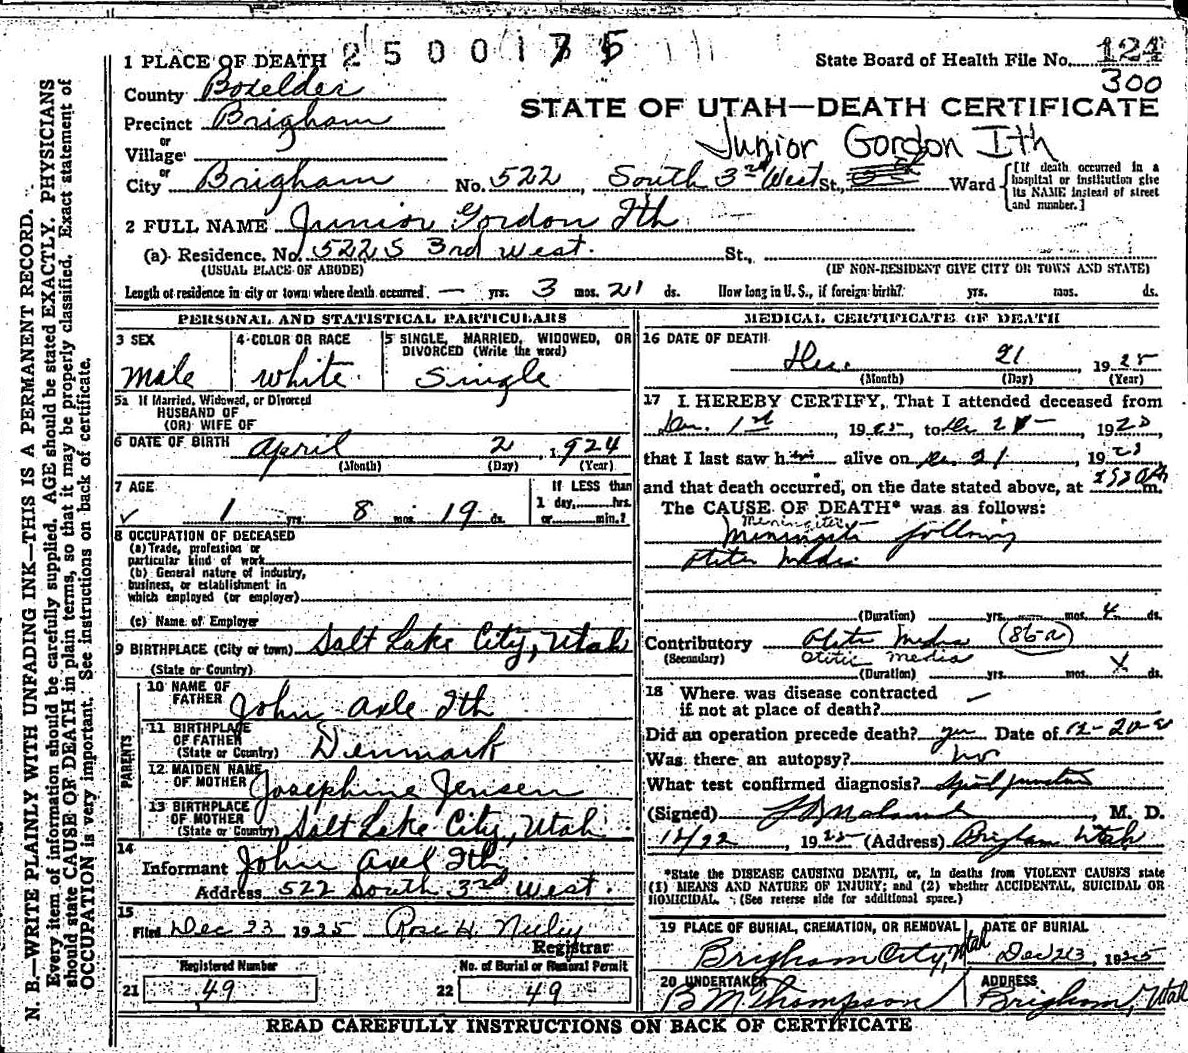 1 PLACE OF DEATH 2500175
State Board of Health File No. 124
300
County Boxelder
STATE OF UTAH—DEATH CERTIFICATE
Precinct Brigham
Junior Gordon Ith
or
Village
or
City Brigham No. 522, South 3rd West St., Ward
[If death occurred in a hospital or institution give its NAME instead of street and number.]
2 FULL NAME Junior Gordon Ith
(a) Residence. No. 522 S 3rd West. St.,
(USUAL PLACE OF ABODE) (IF NON-RESIDENT GIVE CITY OR TOWN AND STATE)
Length of residence in city or town where death occurred. — yrs. 3 mos. 21 ds. How long in U. S., if foreign birth? yrs. mos. ds.
PERSONAL AND STATISTICAL PARTICULARS
3 SEX
Male
4 COLOR OR RACE
White
5 SINGLE, MARRIED, WIDOWED, OR
DIVORCED (Write the word)
Single
5a If Married, Widowed, or Divorced
HUSBAND OF
(OR) WIFE OF
6 DATE OF BIRTH April 2, 1924
(Month) (Day) (Year)
7 AGE
1 yrs. 8 mos. 19 ds.
If LESS than
1 day, hrs.
or min.?
8 OCCUPATION OF DECEASED
(a) Trade, profession or
particular kind of work
(b) General nature of industry,
business, or establishment in
which employed (or employer)
(c) Name of Employer
9 BIRTHPLACE (City or town) Salt Lake City, Utah
(State or Country)
PARENTS
10 NAME OF
FATHER John Axle Ith
11 BIRTHPLACE
OF FATHER
(State or Country) Denmark
12 MAIDEN NAME
OF MOTHER Josephine Jensen
13 BIRTHPLACE
OF MOTHER
(State or Country) Salt Lake City, Utah
14
Informant John Axel Ith
Address 522 South 3rd West.
15
Filed Dec 23 1925 Rose H. Neeley
Registrar
Registered Number
21 49
No. of Burial or Removal Permit
22 49
MEDICAL CERTIFICATE OF DEATH
16 DATE OF DEATH
Dec. 21 1925
(Month) (Day) (Year)
17 I HEREBY CERTIFY, That I attended deceased from
1st, 1925, to Dec 21, 1925,
that I last saw him alive on Dec. 21, 1925
and that death occurred, on the date stated above, at m.
The CAUSE OF DEATH* was as follows:
Meningitis
Meningitis following
Otitis Media
(Duration) yrs. mos. 4 ds.
Contributory Otitis Media (86-a)
(Secondary) Otitis media
(Duration) yrs. mos. ds.
18 Where was disease contracted
if not at place of death? —
Did an operation precede death? yes Date of 12-20-
Was there an autopsy? No
What test confirmed diagnosis? Spinal puncture
(Signed) M. D.
12/22, 1925 (Address) Brigham Utah
*State the DISEASE CAUSING DEATH, or, in deaths from VIOLENT CAUSES state
(1) MEANS AND NATURE OF INJURY; and (2) whether ACCIDENTAL, SUICIDAL OR
HOMICIDAL. (See reverse side for additional space.)
19 PLACE OF BURIAL, CREMATION, OR REMOVAL
Brigham City, Utah
DATE OF BURIAL
Dec 23, 1925
20 UNDERTAKER
B M Thompson
ADDRESS
Brigham, Utah
READ CAREFULLY INSTRUCTIONS ON BACK OF CERTIFICATE
N. B.—WRITE PLAINLY WITH UNFADING INK—THIS IS A PERMANENT RECORD.
Every item of information should be carefully supplied. AGE should be stated EXACTLY. PHYSICIANS
should state CAUSE OF DEATH in plain terms, so that it may be properly classified. Exact statement of
OCCUPATION is very important. See instructions on back of certificate.